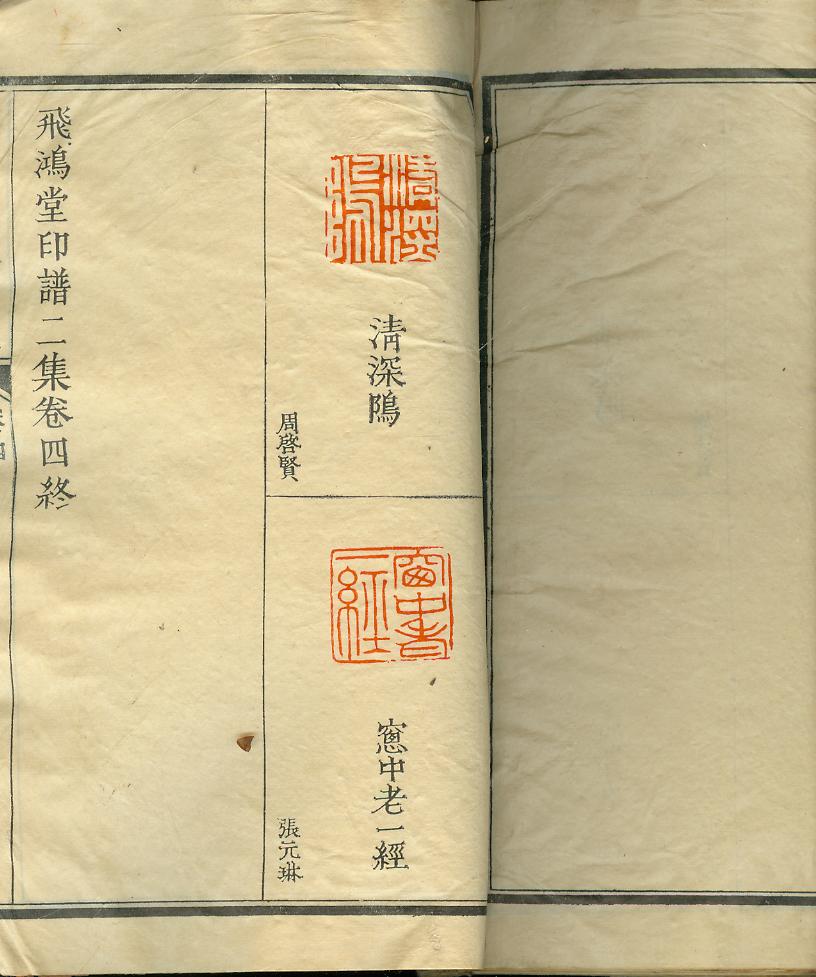 清深隖
周啓賢
窻中老一經
張元琳
飛鴻堂印譜二集卷四終